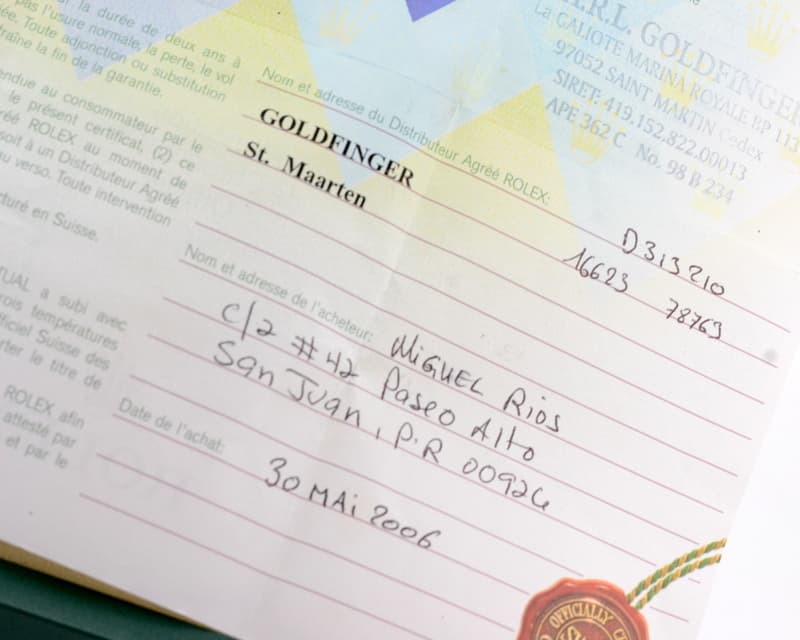 la durée de deux ans à
pas l'usure normale, la perte, le vol
ée. Toute adjonction ou substitution
raîne la fin de la garantie.
endue au consommateur par le
le présent certificat, (2) ce
éé ROLEX au moment de
soit à un Distributeur Agréé
u verso. Toute intervention
cturé en Suisse.
TUAL a subi avec
rois températures
fficiel Suisse des
rter le titre de
ROLEX afin
attesté par
et par le
.R.L. GOLDFINGER
La CALIOTE MARINA ROYALE BP 113
97052 SAINT MARTIN Cedex
SIRET 419.152.822.00013
APE 362 C No. 98 B 234
Nom et adresse du Distributeur Agréé ROLEX:
GOLDFINGER
St. Maarten
D313210
16623 78769
Nom et adresse de l'acheteur: MiGUEL Rios
C/2 #42 Paseo Alto
San Juan, P.R 00926
Date de l'achat:
30 MAi 2006
OFFICIALLY